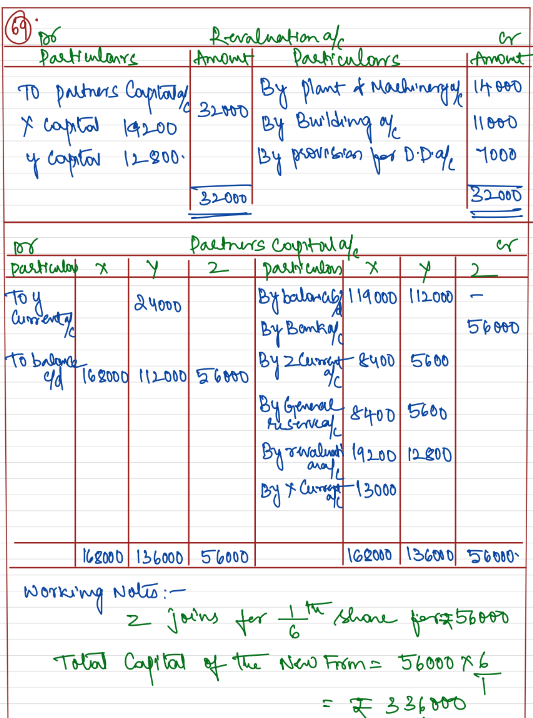 69
Dr Revaluation a/c cr
Particulars Amount Particulars Amount
To partners Capital a/c 32000 By Plant & Machinery a/c 14000
X capital 19200 By Building a/c 11000
y capital 12800. By provision for D.D. a/c 7000
32000 32000
Dr Partners Capital a/c cr
particulars X Y Z particulars X Y Z
To y Current a/c 24000 By balance b/d 119000 112000 -
By Bank a/c 56000
To balance c/d 168000 112000 56000 By Z Current a/c 8400 5600
By General reserve a/c 8400 5600
By revaluation a/c 19200 12800
By X Current a/c 13000
168000 136000 56000 168000 136000 56000.
Working Notes:-
Z joins for 1/6 th share for ₹56000
Total Capital of the New Firm = 56000 × 6/1
= ₹ 336000